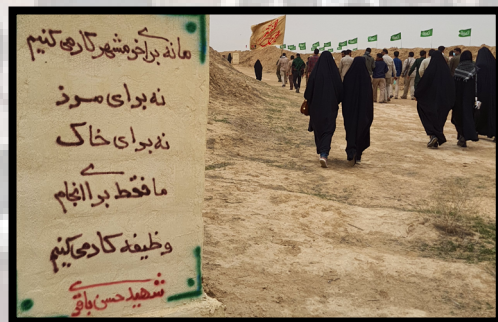 ما نه برای خرمشهر کار می‌کنیم
نه برای مرز
نه برای خاک
ما فقط برای انجام
وظیفه کار می‌کنیم
شهید حسن باقری